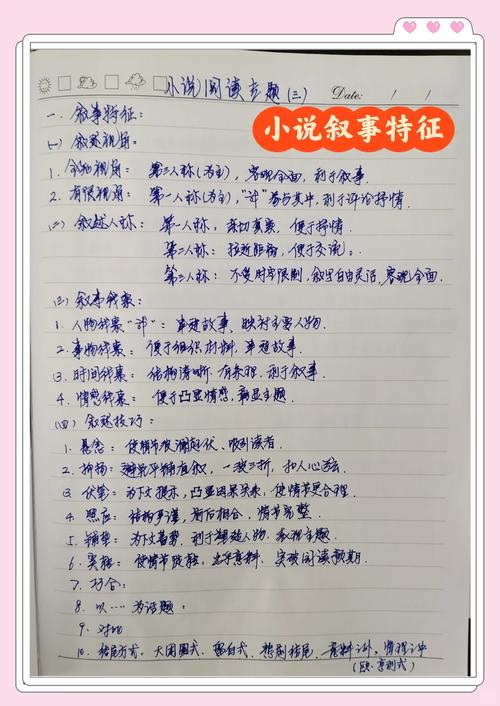 小说阅读专题(三) Date: / /
小说叙事特征
一、叙事特征:
(一) 叙述视角:
1. 全知视角: 第三人称(为主), 客观全面, 利于叙事.
2. 有限视角: 第一人称(为主), "我"参与其中, 利于评论抒情.
(二) 叙述人称: 第一人称, 亲切真实, 便于抒情.
第二人称: 拉近距离, 便于交流。
第三人称: 不受时空限制, 叙出自由灵活, 客观全面.
(三) 叙事线索:
1. 人物线索"我": 串连故事, 映衬主要人物.
2. 事物线索: 便于组织材料, 串连故事.
3. 时间线索: 结构清晰, 有条理, 利于叙事.
4. 情感线索: 便于凸显情感, 凸显主题
(四) 叙述技巧:
1. 悬念: 使情节波澜起伏、吸引读者.
2. 抑扬: 避免平铺直叙, 一波三折, 扣人心弦
3. 伏笔: 为下文提示, 凸显因果关系, 使情节更合理.
4. 照应: 结构严谨, 前后相合, 情节完整
5. 铺垫: 为下文蓄势, 利于塑造人物, 表现主题.
6. 突转: 使情节陡转, 出乎意料, 突破阅读预期.
7. 巧合:
8. 以……为话题:
9. 对比
10. 结尾方式, 大团圆式、留白式、悲剧结尾、意料之外, 情理之中
(欧·亨利式)